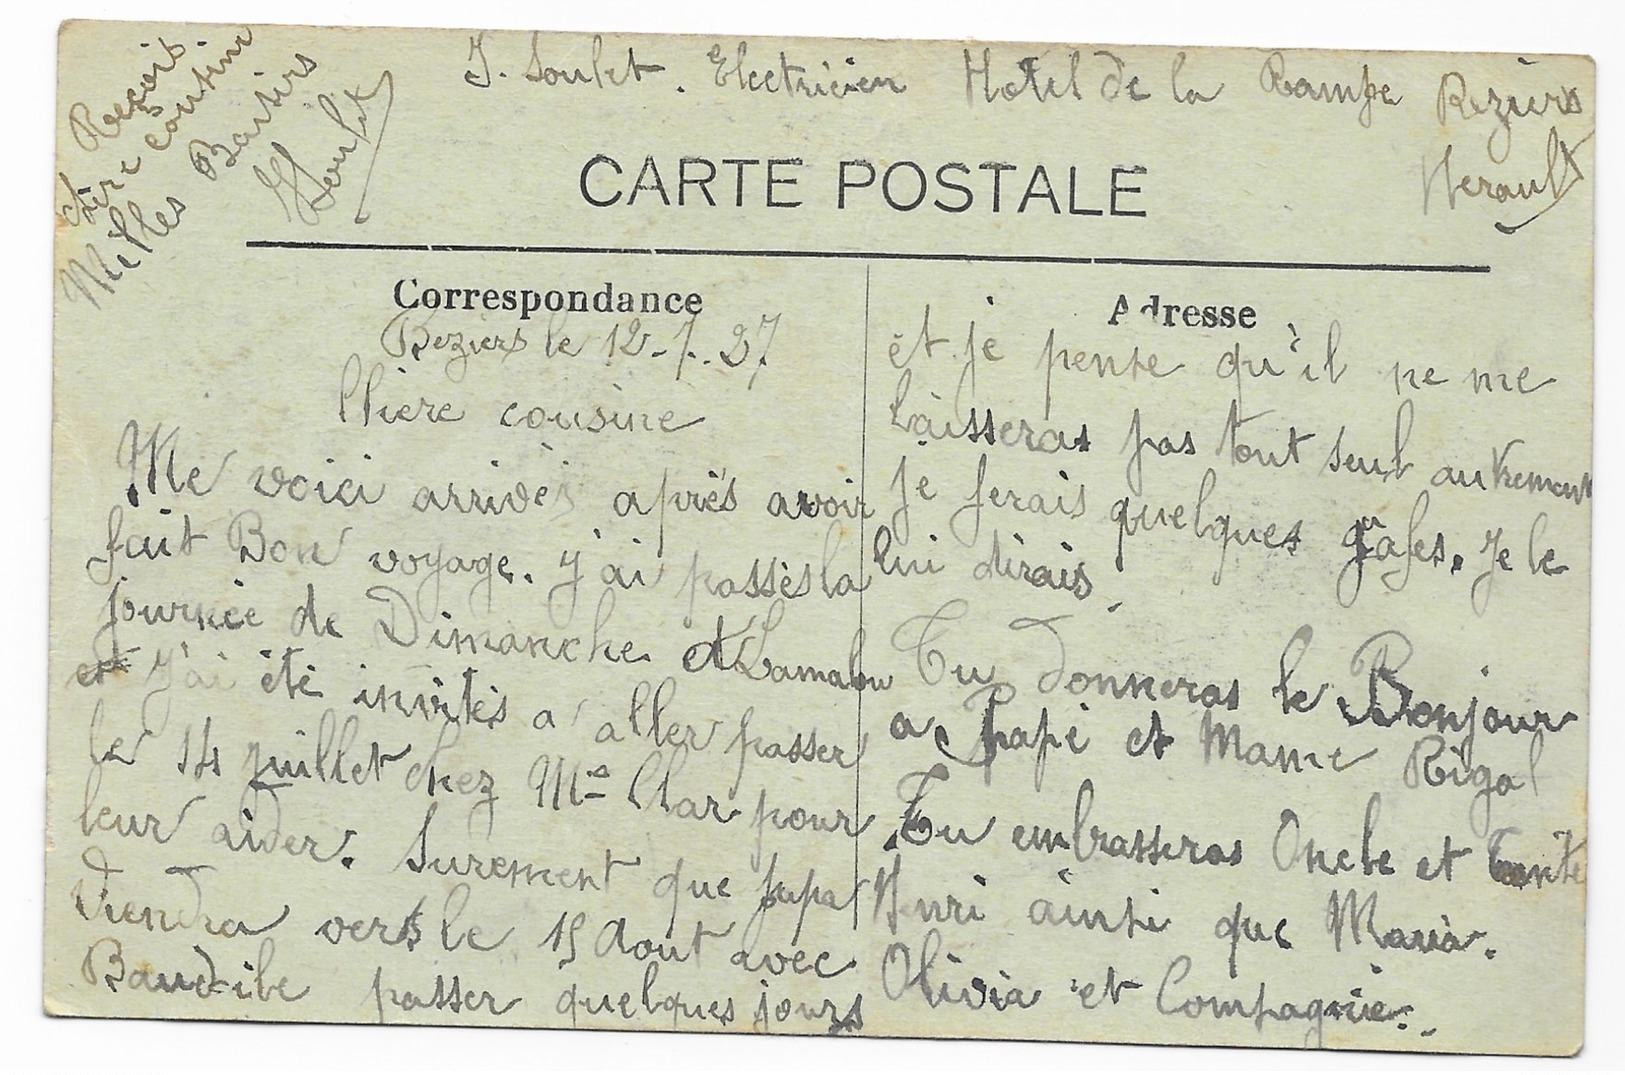 J. Soulet. Electricien Hotel de la Rampe Beziers
Herault
Reçoit
chère cousine
Milles Baisirs
JSoulet
CARTE POSTALE
Correspondance
Beziers le 12-7-27
Chère cousine
Me voici arrivés après avoir
fait Bon voyage. j'ai passés la
journée de Dimanche et Lamalou
et j'ai été invités a aller passer
le 14 juillet chez Me Clar pour
leur aider. Surement que papa
viendra vers le 15 Aout avec
Baudile passer quelques jours
Adresse
et je pense qu'il ne me
laisseras pas tout seul autrement
je ferais quelques gafes. Je le
lui dirais.
Tu donneras le Bonjour
a papé et Mamé Rigal
Tu embrasseras Oncle et Tante
Henri ainsi que Maria.
Olivia et Compagnie..